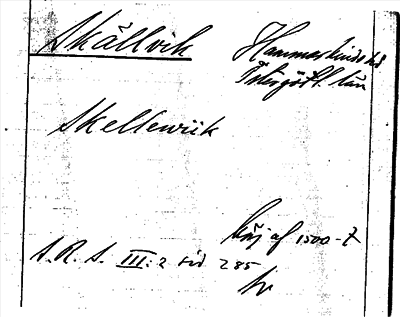 Skällvik Hammarkinds hd
Östergötl. län
Skellewiik
börj af 1500-t
S.R.S. III:2 sid 285